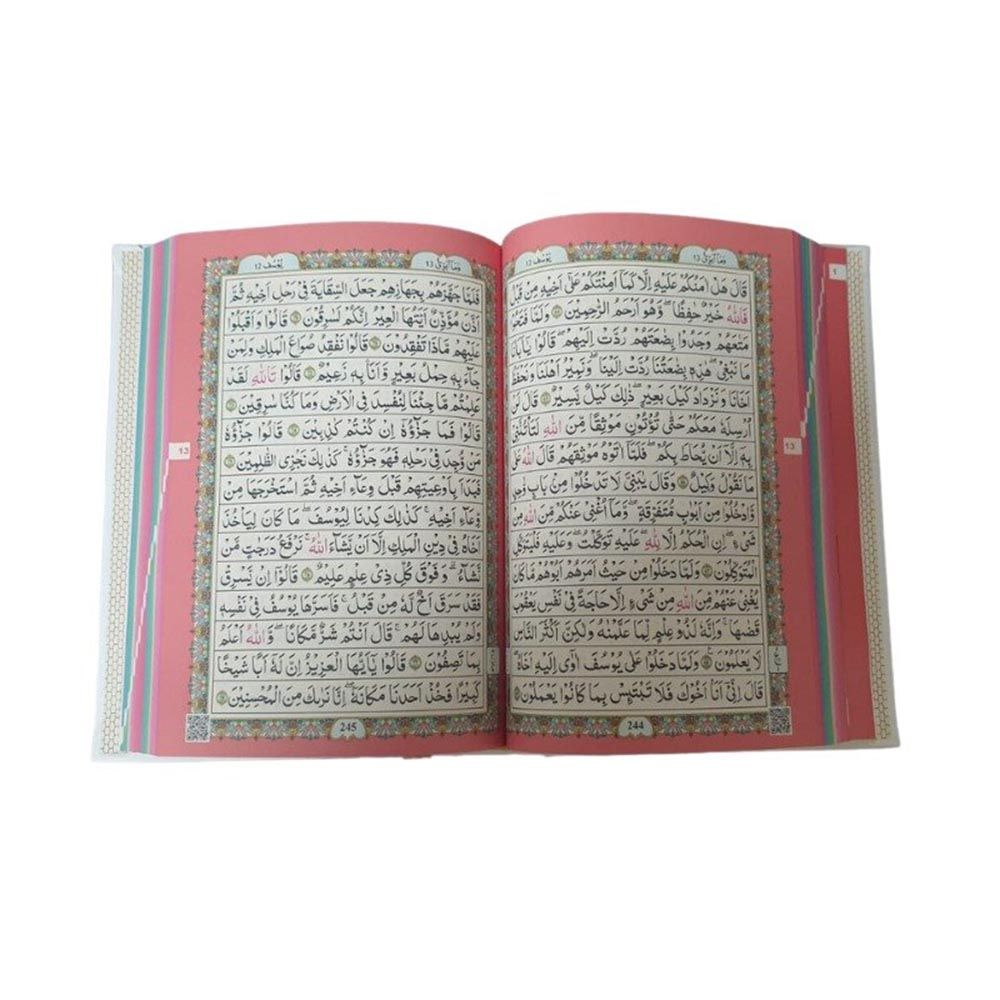 وَمَآ اُبَرِّئُ 13
يُوْسُف 12
قَالَ هَلْ اٰمَنُكُمْ عَلَيْهِ اِلَّا كَمَآ اَمِنْتُكُمْ عَلٰٓى اَخِيْهِ مِنْ قَبْلُ
فَاللّٰهُ خَيْرٌ حٰفِظًا ۖ وَّهُوَ اَرْحَمُ الرّٰحِمِيْنَ ۝ وَلَمَّا فَتَحُوْا
مَتَاعَهُمْ وَجَدُوْا بِضَاعَتَهُمْ رُدَّتْ اِلَيْهِمْ ۗ قَالُوْا يٰٓاَبَانَا
مَا نَبْغِيْ ۗ هٰذِهٖ بِضَاعَتُنَا رُدَّتْ اِلَيْنَا ۚ وَنَمِيْرُ اَهْلَنَا وَنَحْفَظُ
اَخَانَا وَنَزْدَادُ كَيْلَ بَعِيْرٍ ۗ ذٰلِكَ كَيْلٌ يَّسِيْرٌ ۝ قَالَ لَنْ
اُرْسِلَهٗ مَعَكُمْ حَتّٰى تُؤْتُوْنِ مَوْثِقًا مِّنَ اللّٰهِ لَتَأْتُنَّنِيْ
بِهٖٓ اِلَّآ اَنْ يُّحَاطَ بِكُمْ ۚ فَلَمَّآ اٰتَوْهُ مَوْثِقَهُمْ قَالَ اللّٰهُ عَلٰى
مَا نَقُوْلُ وَكِيْلٌ ۝ وَقَالَ يٰبَنِيَّ لَا تَدْخُلُوْا مِنْ بَابٍ وَّاحِدٍ
وَّادْخُلُوْا مِنْ اَبْوَابٍ مُّتَفَرِّقَةٍ ۗ وَمَآ اُغْنِيْ عَنْكُمْ مِّنَ اللّٰهِ مِنْ
شَيْءٍ ۗ اِنِ الْحُكْمُ اِلَّا لِلّٰهِ ۗ عَلَيْهِ تَوَكَّلْتُ ۚ وَعَلَيْهِ فَلْيَتَوَكَّلِ
الْمُتَوَكِّلُوْنَ ۝ وَلَمَّا دَخَلُوْا مِنْ حَيْثُ اَمَرَهُمْ اَبُوْهُمْ ۗ مَا كَانَ
يُغْنِيْ عَنْهُمْ مِّنَ اللّٰهِ مِنْ شَيْءٍ اِلَّا حَاجَةً فِيْ نَفْسِ يَعْقُوْبَ
قَضٰىهَا ۗ وَاِنَّهٗ لَذُوْ عِلْمٍ لِّمَا عَلَّمْنٰهُ وَلٰكِنَّ اَكْثَرَ النَّاسِ
لَا يَعْلَمُوْنَ ۝ وَلَمَّا دَخَلُوْا عَلٰى يُوْسُفَ اٰوٰٓى اِلَيْهِ اَخَاهُ
قَالَ اِنِّيْٓ اَنَا اَخُوْكَ فَلَا تَبْتَئِسْ بِمَا كَانُوْا يَعْمَلُوْنَ ۝
244
13
1
وَمَآ اُبَرِّئُ 13
يُوْسُف 12
فَلَمَّا جَهَّزَهُمْ بِجَهَازِهِمْ جَعَلَ السِّقَايَةَ فِيْ رَحْلِ اَخِيْهِ ثُمَّ
اَذَّنَ مُؤَذِّنٌ اَيَّتُهَا الْعِيْرُ اِنَّكُمْ لَسٰرِقُوْنَ ۝ قَالُوْا وَاَقْبَلُوْا
عَلَيْهِمْ مَّاذَا تَفْقِدُوْنَ ۝ قَالُوْا نَفْقِدُ صُوَاعَ الْمَلِكِ وَلِمَنْ
جَآءَ بِهٖ حِمْلُ بَعِيْرٍ وَّاَنَا۠ بِهٖ زَعِيْمٌ ۝ قَالُوْا تَاللّٰهِ لَقَدْ
عَلِمْتُمْ مَّا جِئْنَا لِنُفْسِدَ فِي الْاَرْضِ وَمَا كُنَّا سٰرِقِيْنَ ۝
قَالُوْا فَمَا جَزَآؤُهٗٓ اِنْ كُنْتُمْ كٰذِبِيْنَ ۝ قَالُوْا جَزَآؤُهٗ
مَنْ وُّجِدَ فِيْ رَحْلِهٖ فَهُوَ جَزَآؤُهٗ ۚ كَذٰلِكَ نَجْزِي الظّٰلِمِيْنَ ۝
فَبَدَاَ بِاَوْعِيَتِهِمْ قَبْلَ وِعَآءِ اَخِيْهِ ثُمَّ اسْتَخْرَجَهَا مِنْ
وِّعَآءِ اَخِيْهِ ۚ كَذٰلِكَ كِدْنَا لِيُوْسُفَ ۗ مَا كَانَ لِيَأْخُذَ
اَخَاهُ فِيْ دِيْنِ الْمَلِكِ اِلَّآ اَنْ يَّشَآءَ اللّٰهُ ۗ نَرْفَعُ دَرَجٰتٍ مَّنْ
نَّشَآءُ ۗ وَفَوْقَ كُلِّ ذِيْ عِلْمٍ عَلِيْمٌ ۝ قَالُوْٓا اِنْ يَّسْرِقْ
فَقَدْ سَرَقَ اَخٌ لَّهٗ مِنْ قَبْلُ ۚ فَاَسَرَّهَا يُوْسُفُ فِيْ نَفْسِهٖ
وَلَمْ يُبْدِهَا لَهُمْ ۚ قَالَ اَنْتُمْ شَرٌّ مَّكَانًا ۚ وَاللّٰهُ اَعْلَمُ
بِمَا تَصِفُوْنَ ۝ قَالُوْا يٰٓاَيُّهَا الْعَزِيْزُ اِنَّ لَهٗٓ اَبًا شَيْخًا
كَبِيْرًا فَخُذْ اَحَدَنَا مَكَانَهٗ ۚ اِنَّا نَرٰىكَ مِنَ الْمُحْسِنِيْنَ ۝
245
13